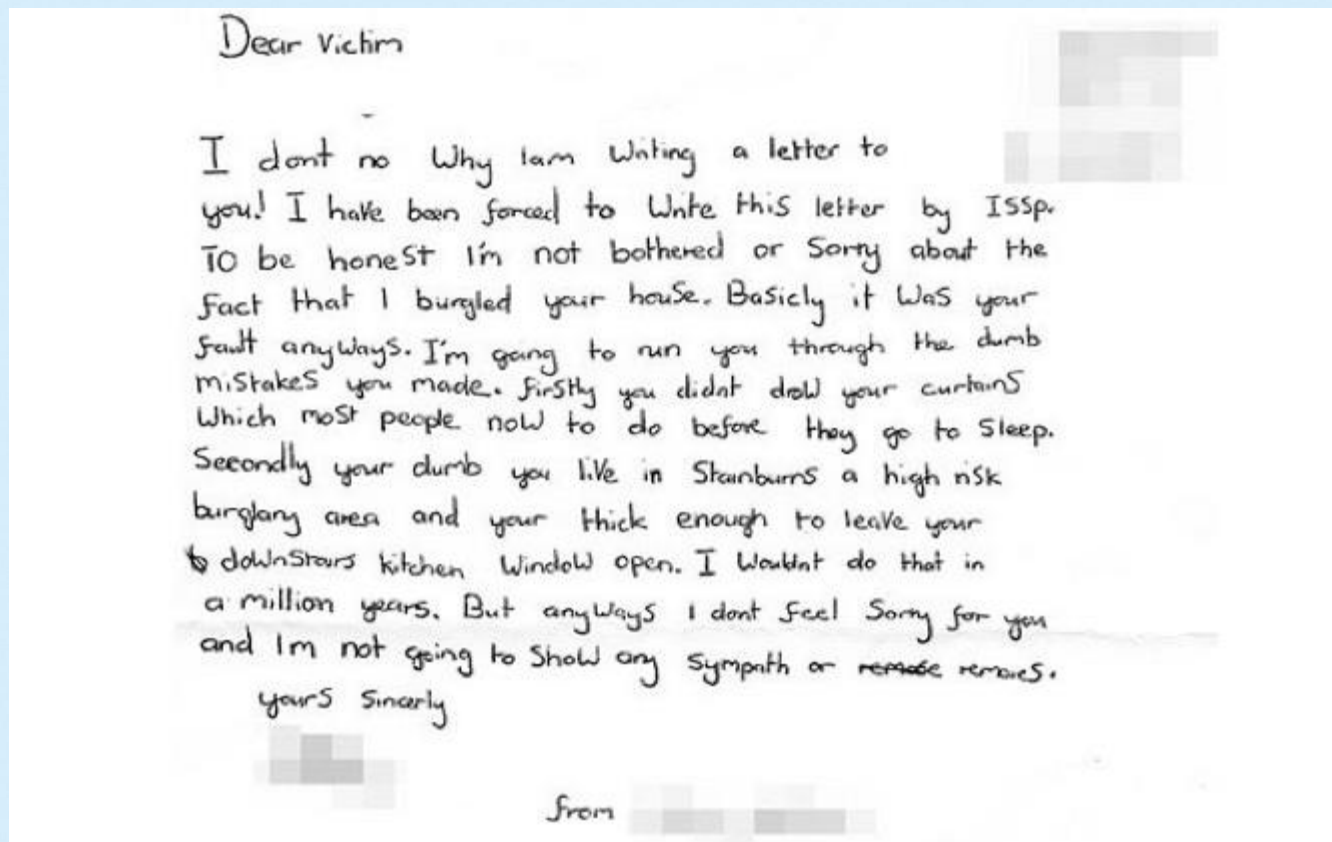 Dear Victim
I dont no Why Iam Writing a letter to
you! I have been forced to Write this letter by ISSP.
To be honest I'm not bothered or Sorry about the
fact that I burgled your house. Basicly it Was your
fault anyways. I'm going to run you through the dumb
mistakes you made. firstly you didnt drow your curtains
Which most people now to do before they go to Sleep.
Secondly your dumb you live in Stainburns a high risk
burglary area and your thick enough to leave your
downstairs kitchen Window open. I Wouldnt do that in
a million years. But anyways I dont feel Sorry for you
and Im not going to Show any sympath or remores.
yours Sincerly
from